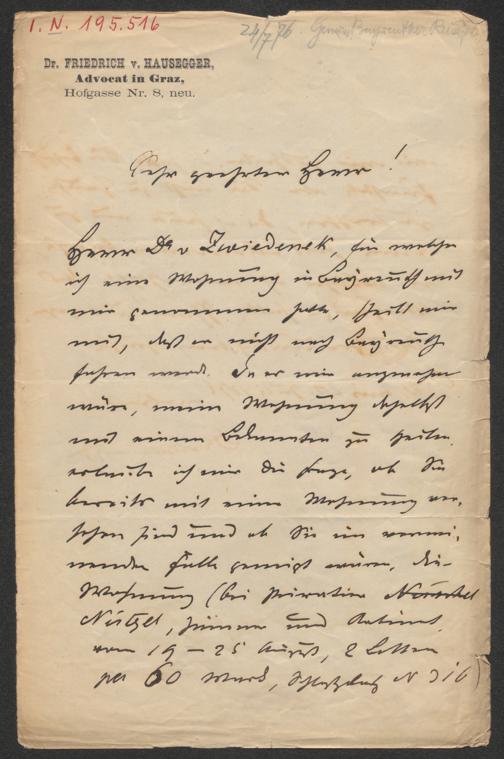 I. N. 195.516
24/7/76
Dr. FRIEDRICH v. HAUSEGGER,
Advocat in Graz,
Hofgasse Nr. 8, neu.
Sehr geehrter Herr!
Herr Dr v Zwiedenek, für welchen
ich eine Wohnung in Bayreuth mit
mir genommen hatte, theilt mir
mit, daß er nicht nach Bayreuth
fahren werde. Da es mir angenehm
wäre, meine Wohnung daselbst
mit einem Bekannten zu theilen,
erlaube ich mir die Frage, ob Sie
bereits mit einer Wohnung ver-
sehen sind und ob Sie im vernei-
nenden Falle geneigt wären, die
Wohnung (bei Privatier
Nützel, Zimmer und Kabinet,
vom 19 – 25 August, 2 Betten
per 60 Mark, N 316)